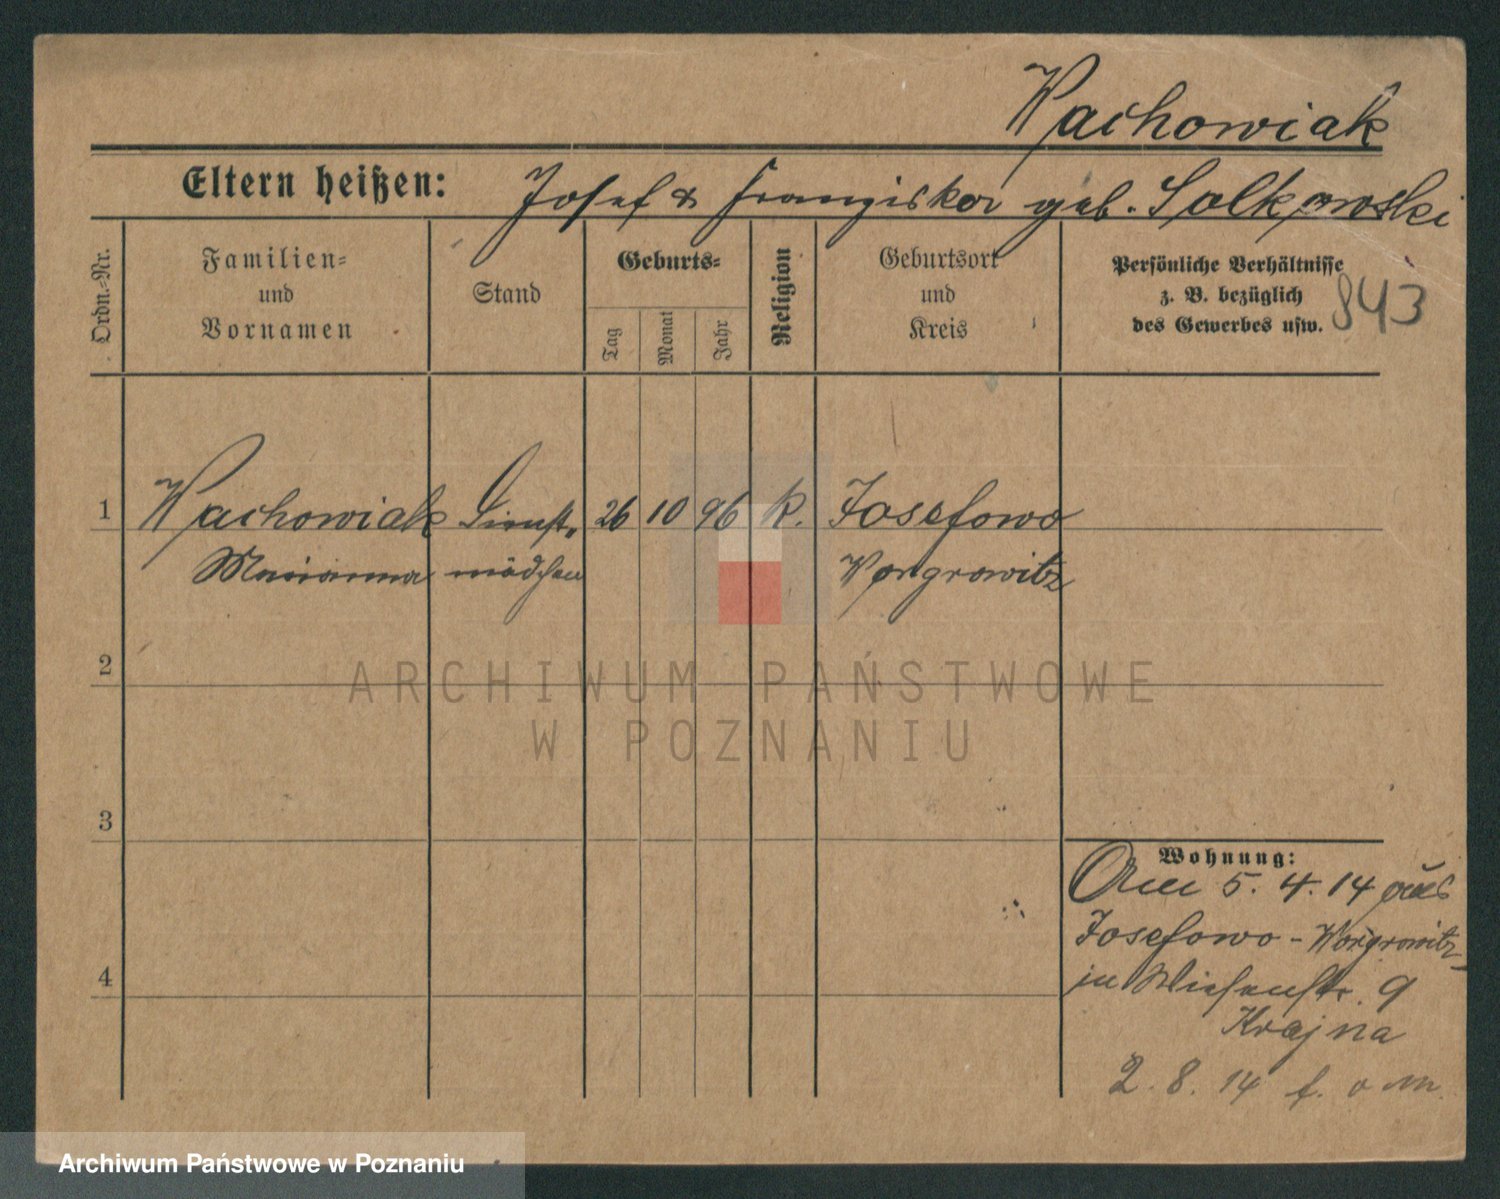 Wachowiak
Eltern heißen: Josef & Franziska geb. Solkowski
Ordn.-Nr.
Familien-
und
Vornamen
Stand
Geburts-
Tag
Monat
Jahr
Religion
Geburtsort
und
Kreis
Persönliche Verhältnisse
z. B. bezüglich
des Gewerbes usw.
843
1 Wachowiak Dienst- 26 10 96 k. Josefowo
Marianna mädchen Wongrowitz
2
3
4
Wohnung:
5. 4. 14 aus
Josefowo - Wongrowitz
in Wiesenstr. 9
Krajna
2. 8. 14 f. o M.
ARCHIWUM PAŃSTWOWE
W POZNANIU
Archiwum Państwowe w Poznaniu